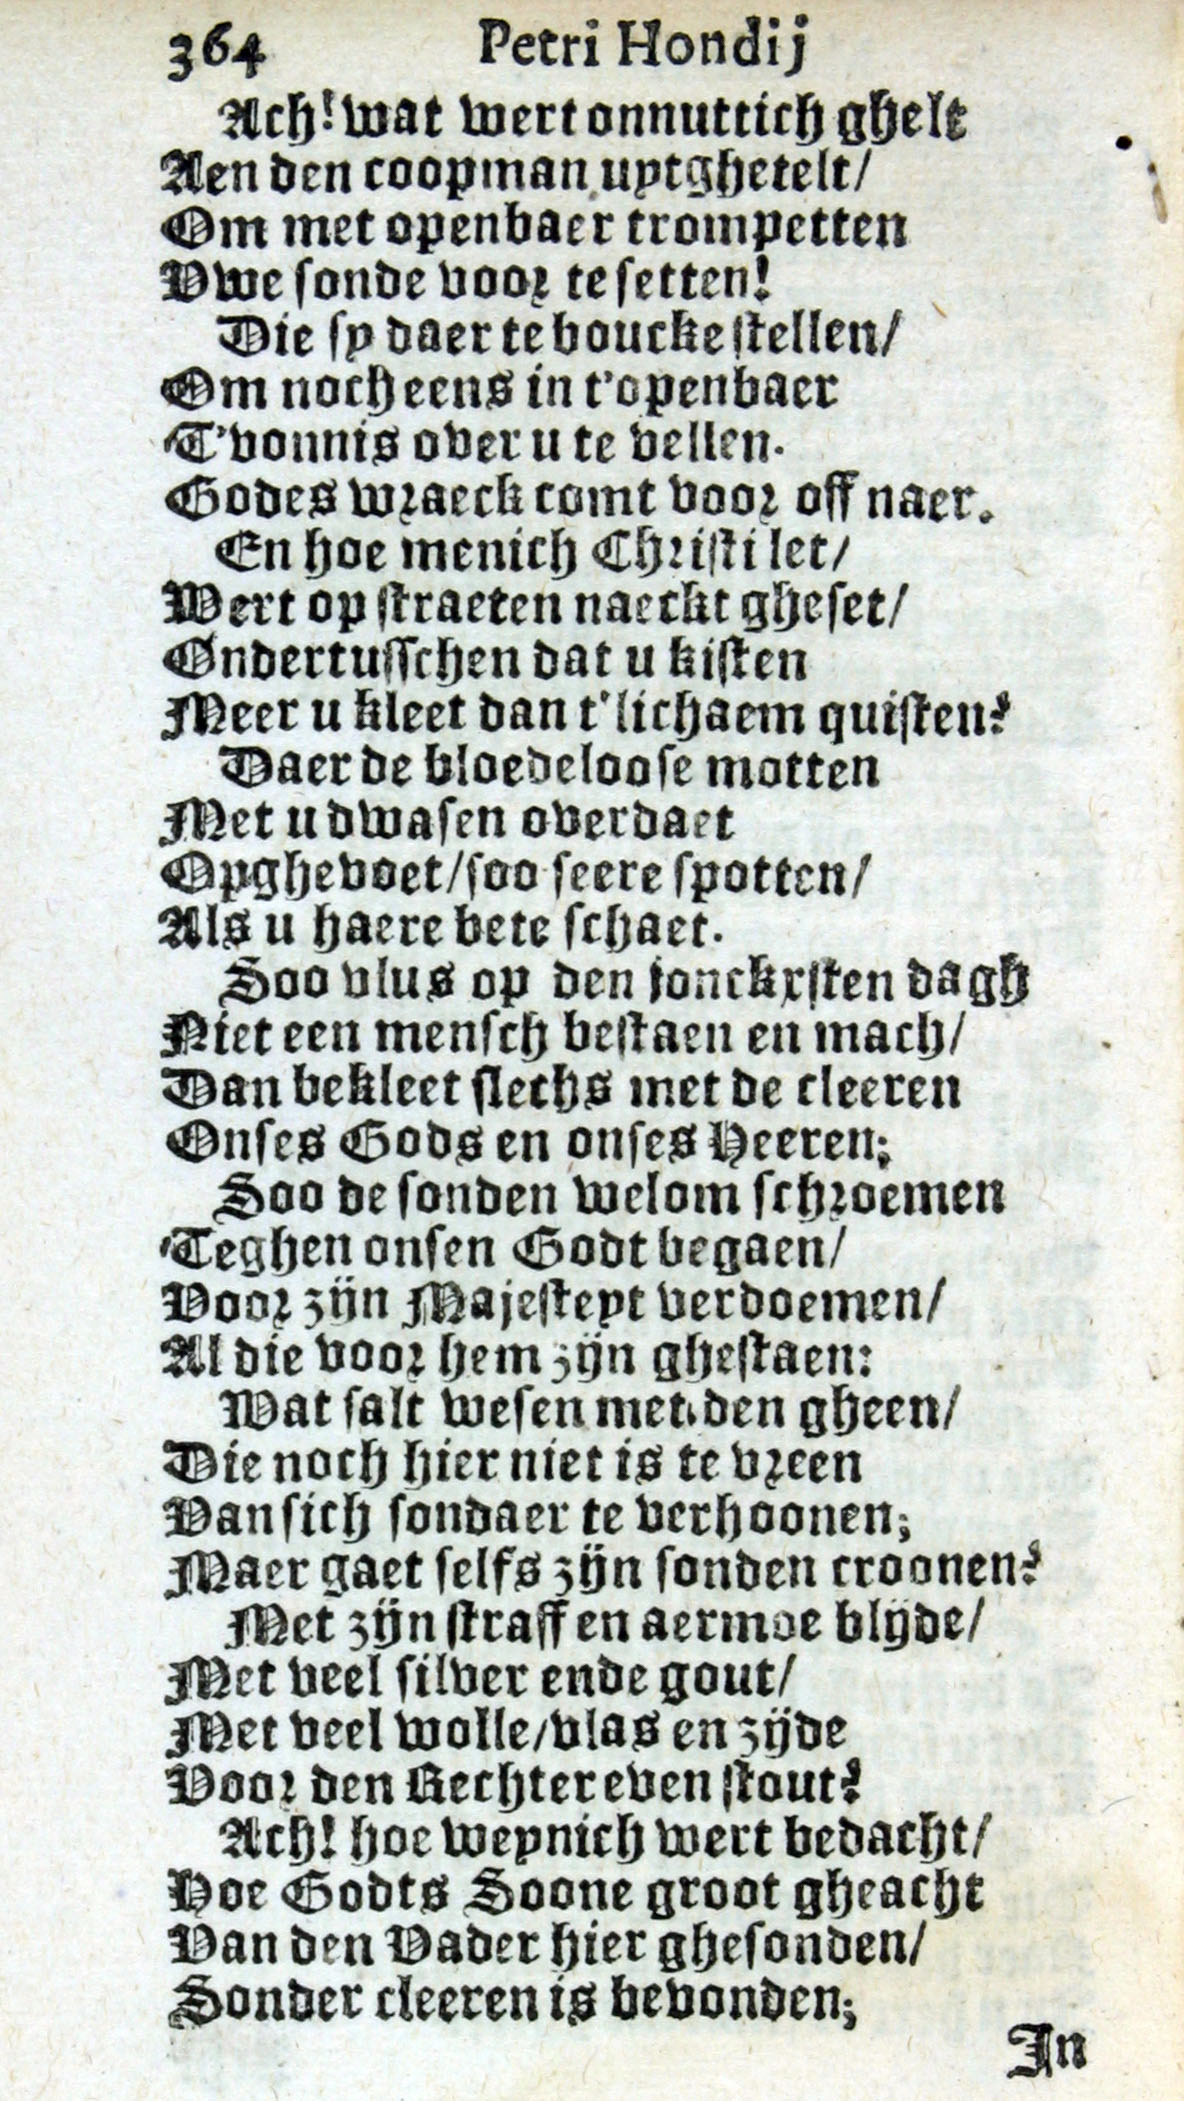 364 Petri Hondij
Ach! wat wert onnuttich ghelt
Aen den coopman uytghetelt/
Om met openbaer trompetten
Vwe sonde voor te setten!
Die sy daer te boucke stellen/
Om noch eens in t'openbaer
T'vonnis over u te vellen.
Godes wraeck comt voor off naer.
En hoe menich Christi let/
Wert op straeten naeckt gheset/
Ondertusschen dat u kisten
Meer u kleet dan t'lichaem quisten?
Daer de bloedeloose motten
Met u dwasen overdaet
Opghevoet/soo seere spotten/
Als u haere bete schaet.
Soo vlus op den jonckxsten dagh
Niet een mensch bestaen en mach/
Dan bekleet slechs met de cleeren
Onses Gods en onses Heeren;
Soo de sonden welom schroemen
Teghen onsen Godt begaen/
Voor zijn Majesteyt verdoemen/
Al die voor hem zijn ghestaen:
Wat salt wesen met den gheen/
Die noch hier niet is te vreen
Van sich sondaer te verhoonen;
Maer gaet selfs zijn sonden croonen?
Met zijn straff en aermoe blijde/
Met veel silver ende gout/
Met veel wolle/vlas en zijde
Voor den Rechter even stout?
Ach! hoe weynich wert bedacht/
Hoe Godts Soone groot gheacht
Van den Vader hier ghesonden/
Sonder cleeren is bevonden;
In